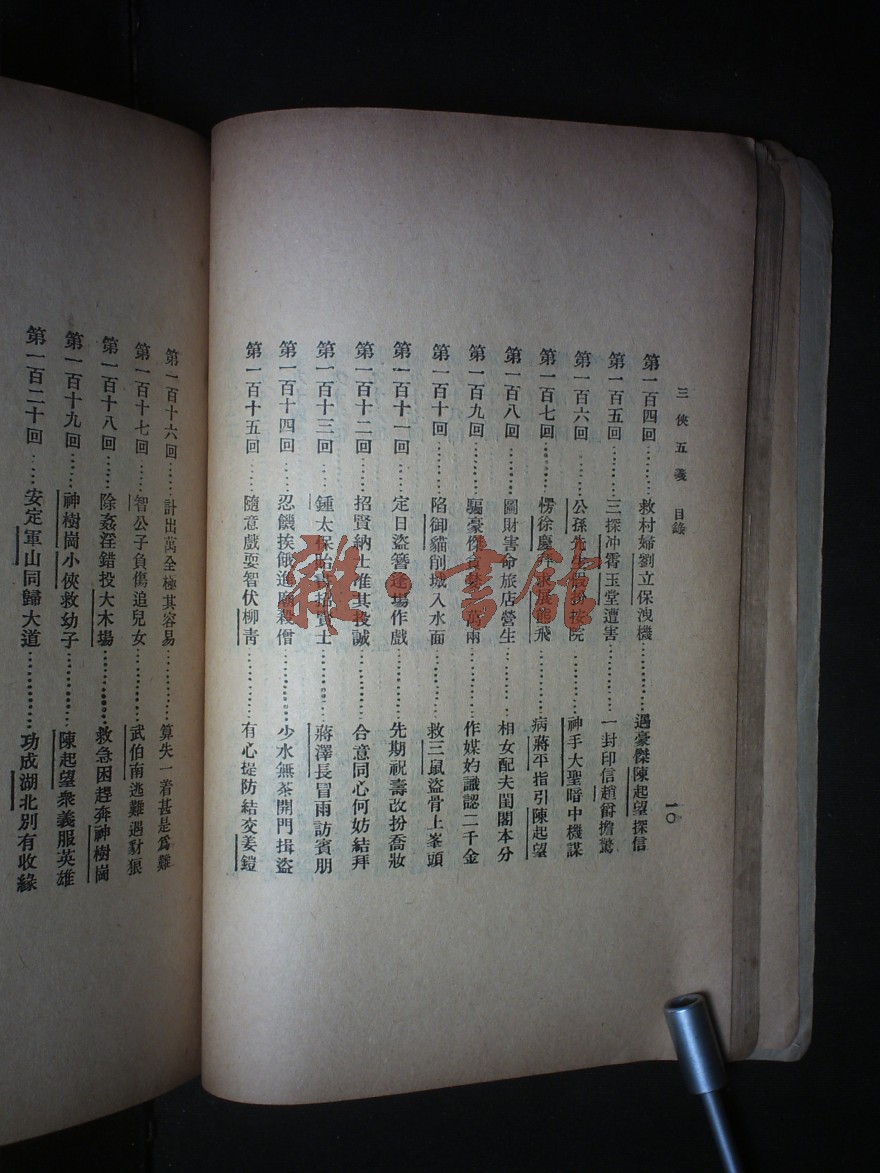 三俠五義 目錄 一〇
第一百四回………救村婦劉立保洩機…………遇豪傑陳起望探信
第一百五回………三探冲霄玉堂遭害…………一封印信趙爵擔驚
第一百六回………公孫先生假扮按院…………神手大聖暗中機謀
第一百七回………愣徐慶拜求展熊飛…………病蔣平指引陳起望
第一百八回………圖財害命旅店營生…………相女配夫閨閣本分
第一百九回………騙豪傑貪婪一萬兩…………作媒妁識認二千金
第一百十回………陷御貓削城入水面…………救三鼠盜骨上峯頭
第一百十一回……定日盜簪逢場作戲…………先期祝壽改扮喬妝
第一百十二回……招賢納士准其投誠…………合意同心何妨結拜
第一百十三回……鍾太保貽書招賢士…………蔣澤長冒雨訪賓朋
第一百十四回……忍饑挨餓進廟殺僧…………少水無茶開門揖盜
第一百十五回……隨意戲耍智伏柳青…………有心提防結交姜鎧
第一百十六回……計出萬全極其容易…………算失一着甚是爲難
第一百十七回……智公子負傷追兒女…………武伯南逃難遇豺狼
第一百十八回……除姦淫錯投大木場…………救急困趕奔神樹崗
第一百十九回……神樹崗小俠救幼子…………陳起望衆義服英雄
第一百二十回……安定軍山同歸大道…………功成湖北別有收緣
雜·書館